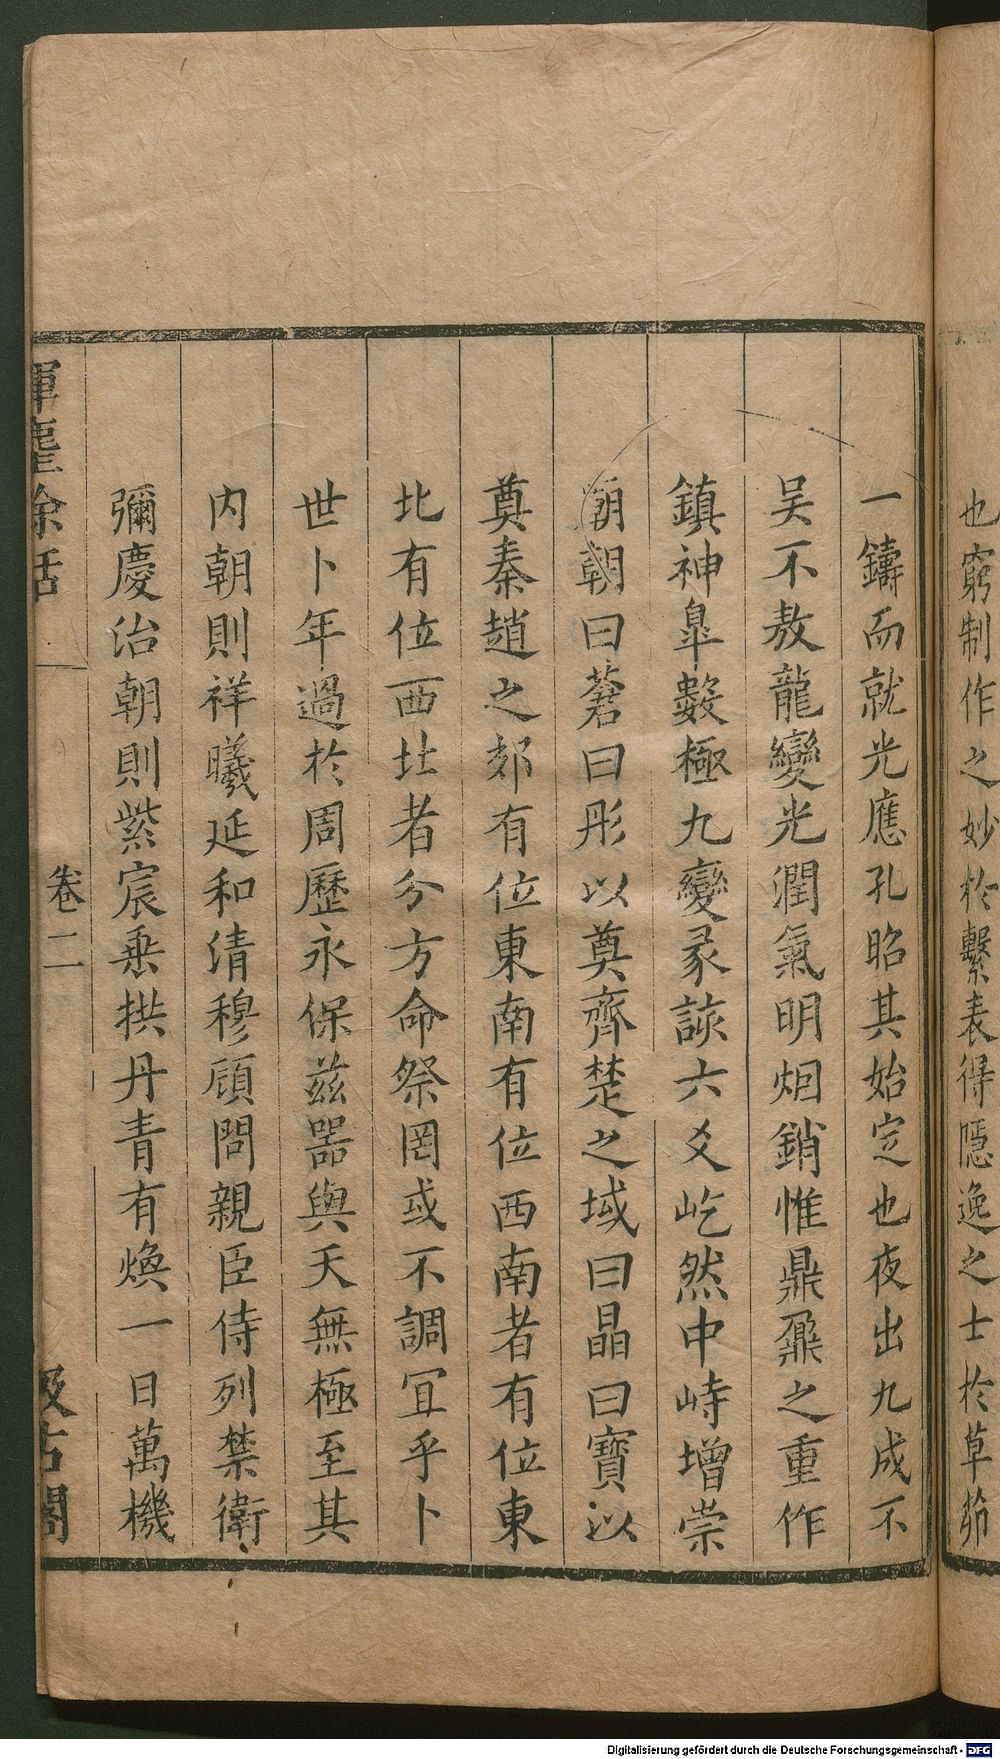 也窮制作之妙於繫表得隱逸之士於草茆
一鑄而就光應孔昭其始定也夜出九成不
吴不敖龍變光潤氣明烟銷惟鼎鼐之重作
鎮神臯數極九變彖該六爻屹然中峙增崇
廟朝曰蒼曰彤以奠齊楚之域曰晶曰寶以
奠秦趙之郊有位東南有位西南者有位東
北有位西北者分方命祭罔或不調宜乎卜
世卜年過於周歷永保兹器與天無極至其
内朝則祥曦延和清穆顧問親臣侍列禁衛
彌慶治朝則紫宸垂拱丹青有煥一日萬機
揮麈餘話 卷二 汲古閣
Digitalisierung gefördert durch die Deutsche Forschungsgemeinschaft - DFG